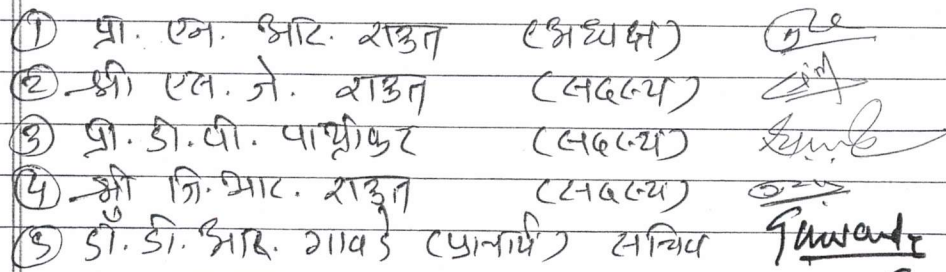 ① प्रा. एन. आर. राऊत (अध्यक्ष)
② श्री एल. जे. राऊत (सदस्य)
③ प्रा. डी. वी. पाथ्रीकर (सदस्य)
④ श्री जि. आर. राऊत (सदस्य)
⑤ डॉ. डी. आर. गावडे (प्राचार्य) सचिव